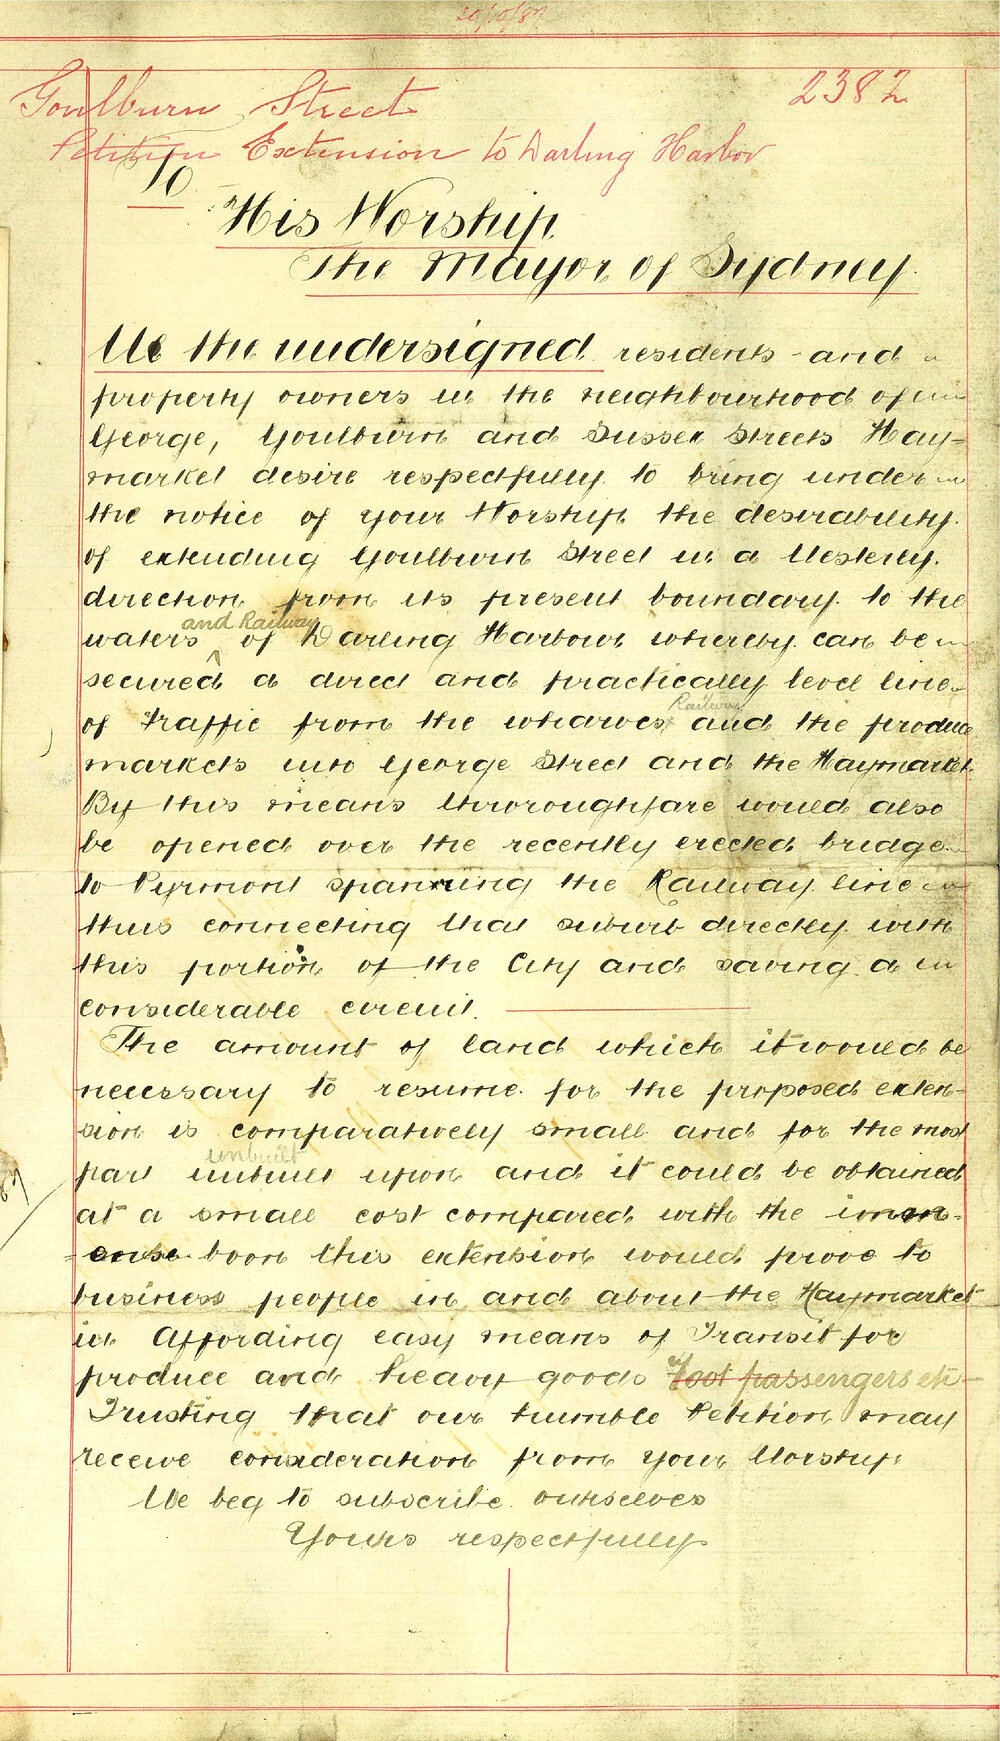 20/10/87
Goulburn Street
2382
Petition Extension to Darling Harbor
To
His Worship
The Mayor of Sydney.
We the undersigned residents and
property owners in the neighbourhood of
George, Goulburn and Sussex Streets Hay-
market desire respectfully to bring under
the notice of your Worship the desirability
of extending Goulburn Street in a Westerly
direction from its present boundary to the
and Railway
waters of Darling Harbour whereby can be
secured a direct and practically level line
Railway
of Traffic from the wharves and the produce
markets into George Street and the Haymarket.
By this means thoroughfare would also
be opened over the recently erected bridge
to Pyrmont spanning the Railway line
thus connecting that suburb directly with
this portion of the City and saving a
considerable circuit.
The amount of land which it would be
necessary to resume for the proposed exten-
sion is comparatively small and for the most
unbuilt
part unbuilt upon and it could be obtained
at a small cost compared with the imm-
ense boon this extension would prove to
business people in and about the Haymarket
in Affording easy means of Transit for
produce and heavy goods Foot passengers etc
Trusting that our humble Petition may
receive consideration from your Worship
We beg to subscribe ourselves
Yours respectfully